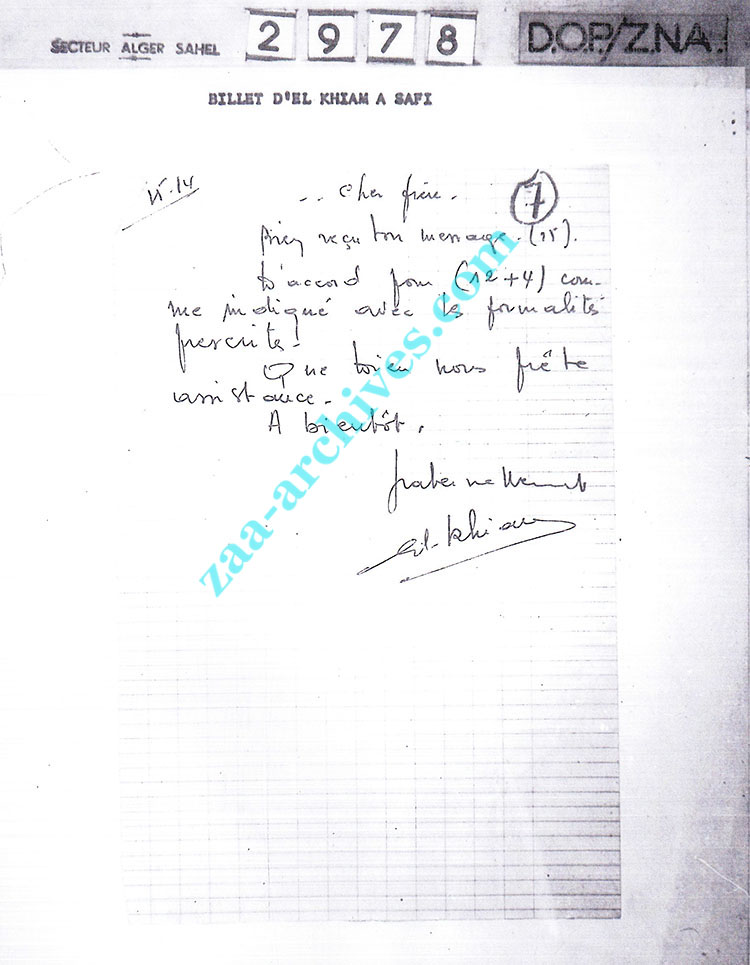 SECTEUR ALGER SAHEL 2978 D.O.P./Z.N.A.
BILLET D'EL KHIAM A SAFI
N° 14
-- Cher frère.
7
Bien reçu ton message. (15).
D'accord pour (12+4) com-
me indiqué avec les formalités
prescrites.
Que Dieu nous prête
assistance.
A bientôt.
fraternellement
El-Khiam
zaa-archives.com